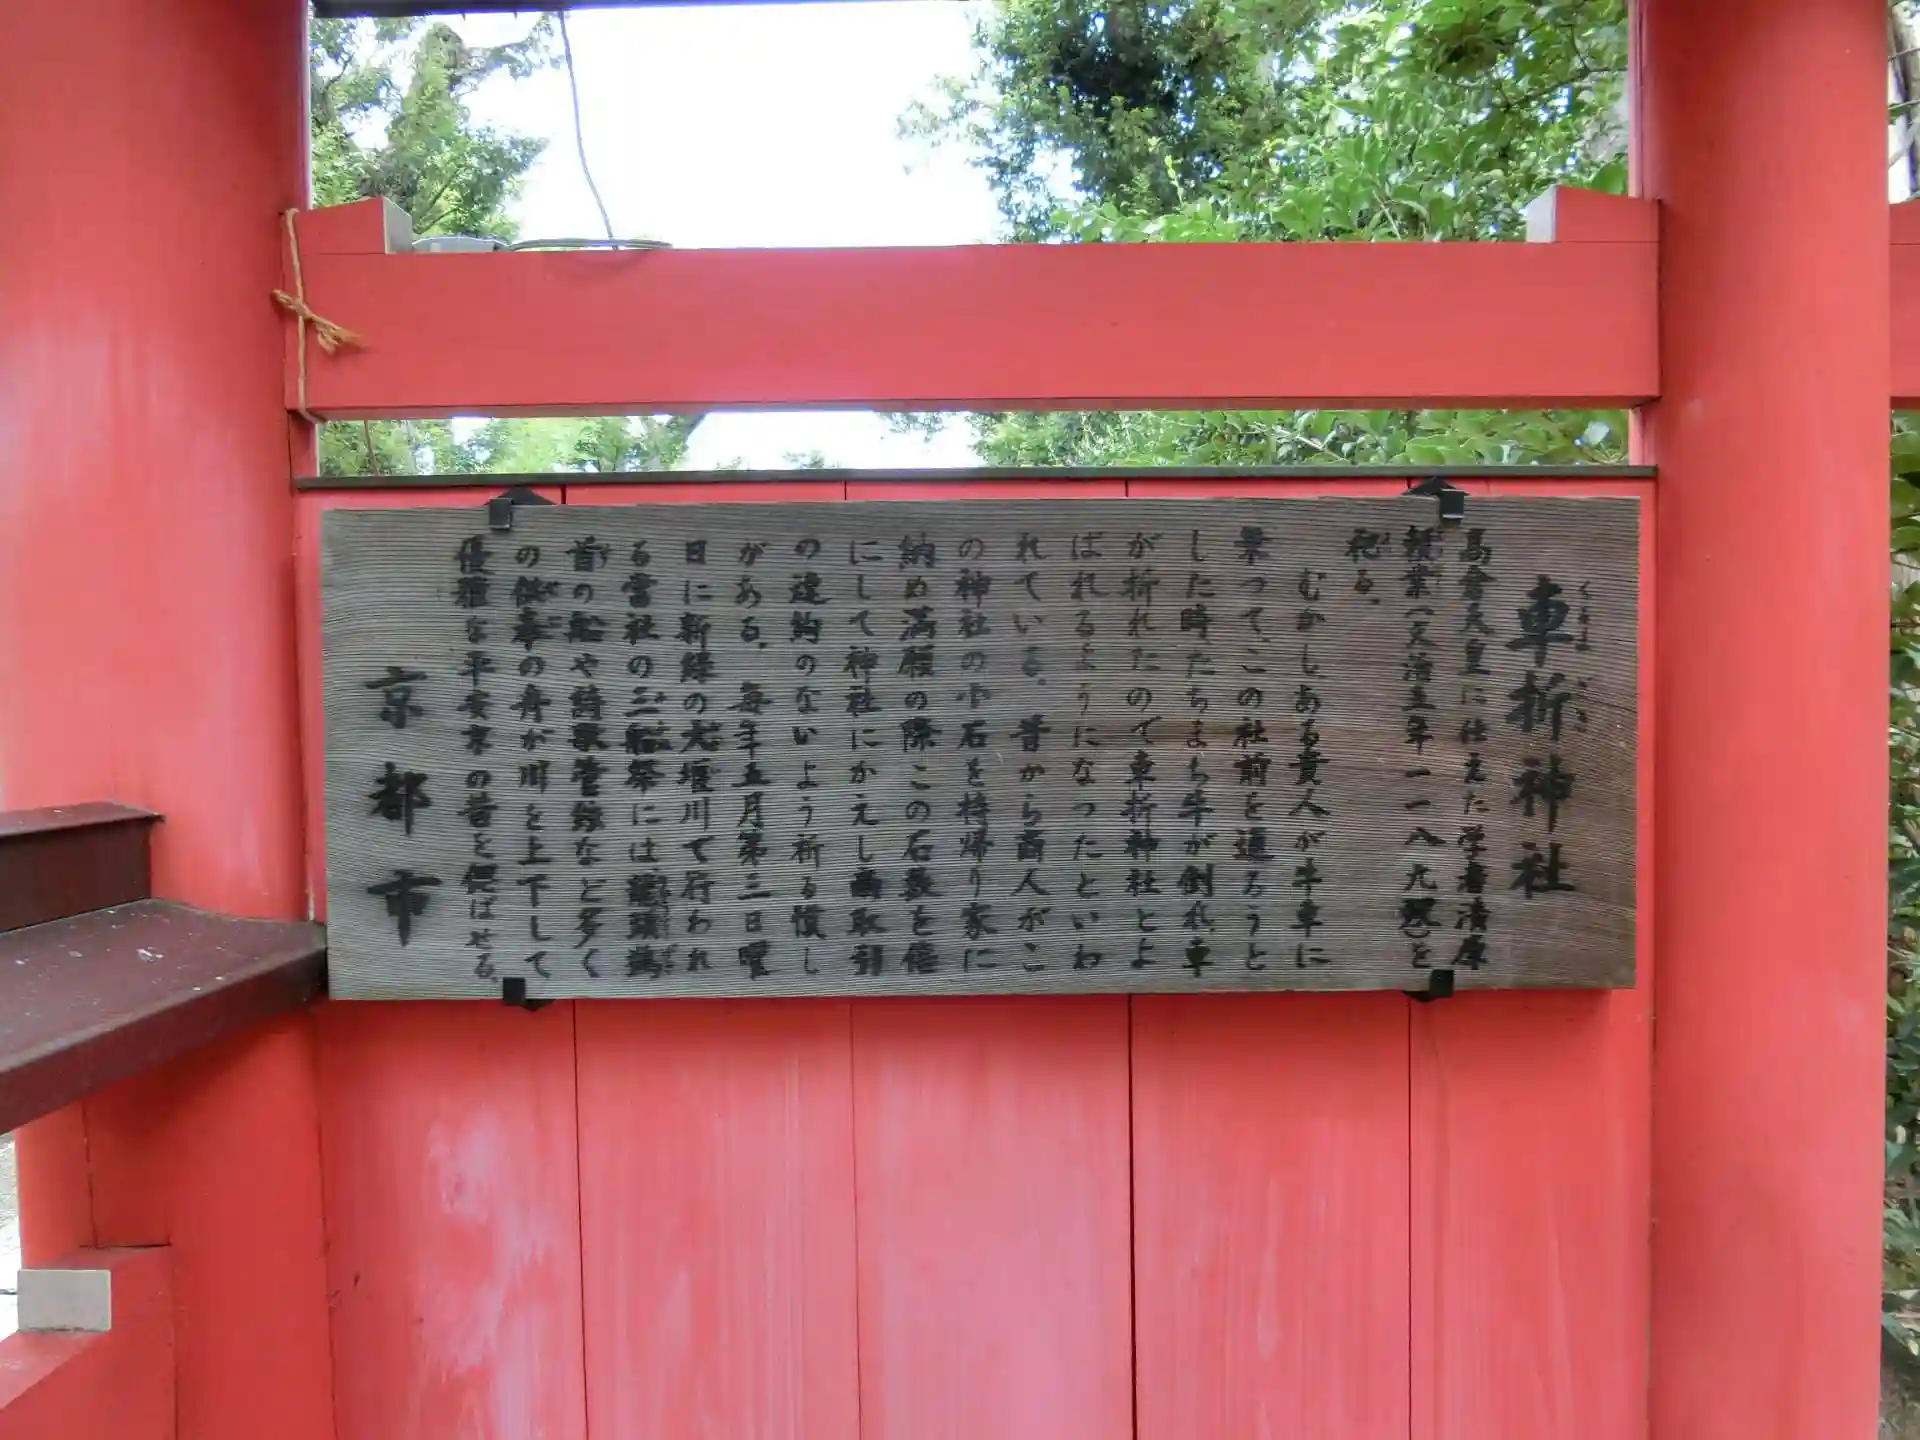 車折神社
くるまざき
高倉天皇に仕えた学者清原
頼業(文治五年一一八九歿)を
祀る。
むかし、ある貴人が牛車に
乗って、この社前を通ろうと
した時たちまち牛が倒れ、車
が折れたので車折神社とよ
ばれるようになったといわ
れている。昔から商人がこ
の神社の小石を持帰り家に
納め満願の際この石数を倍
にして神社にかえし商取引
の違約のないよう祈る慣し
がある。毎年五月第三日曜
日に新緑の大堰川で行われ
る當社の三船祭には、龍頭鷁
首の船や詩歌管絃など多く
の供奉の舟が川を上下して
優雅な平安京の昔を偲ばせる。
京都市